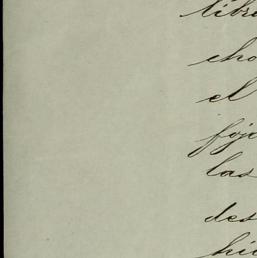 libr
cho
el
foja
las
des
hi